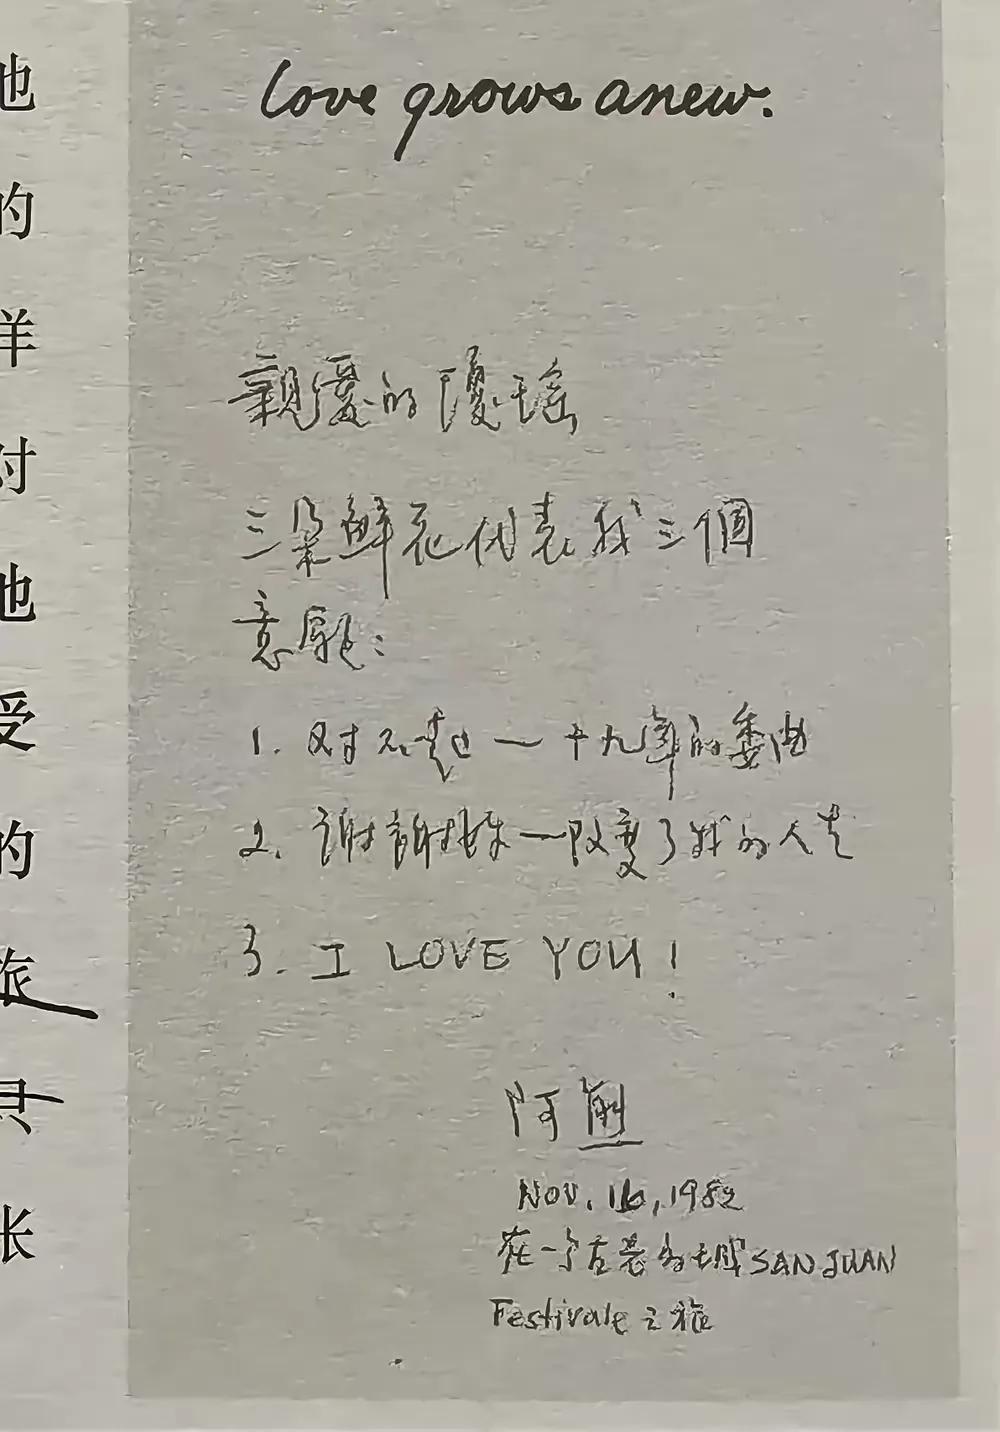 love grows anew.
親愛的瓊瑤
三朵鮮花代表我三個
意願：
1. 对不起一十九年的委曲
2. 謝謝妳一改變了我的人生
3. I LOVE YOU！
阿
NOV. 16, 1982
在一个古老的城 SAN JUAN
Festivale 之旅
他
的
样
对
她
受
的
旅
只
张